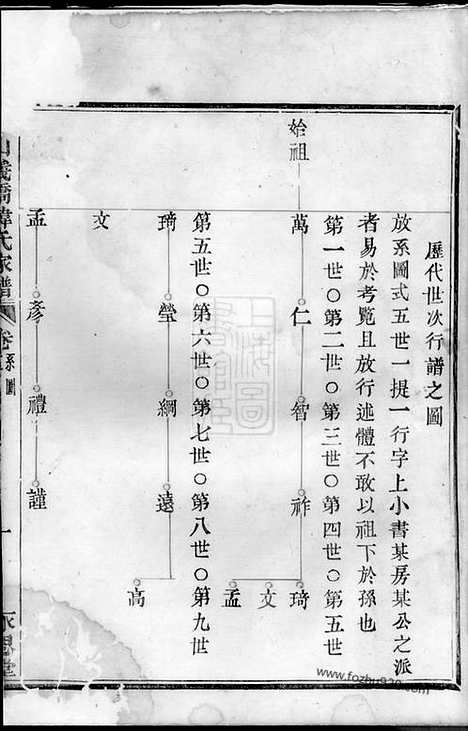 歷代世次行譜之圖
放系圖式五世一提一行字上小書某房某公之派
者易於考覽且放行述體不敢以祖下於孫也
第一世○第二世○第三世○第四世○第五世
始祖 萬 仁 智 祚 琦
文
孟
第五世○第六世○第七世○第八世○第九世
琦 瑩 綱 遠
高
文
孟 彥 禮 謹
山義橋韓氏家譜 卷 系圖 一
www.fozhu920.com